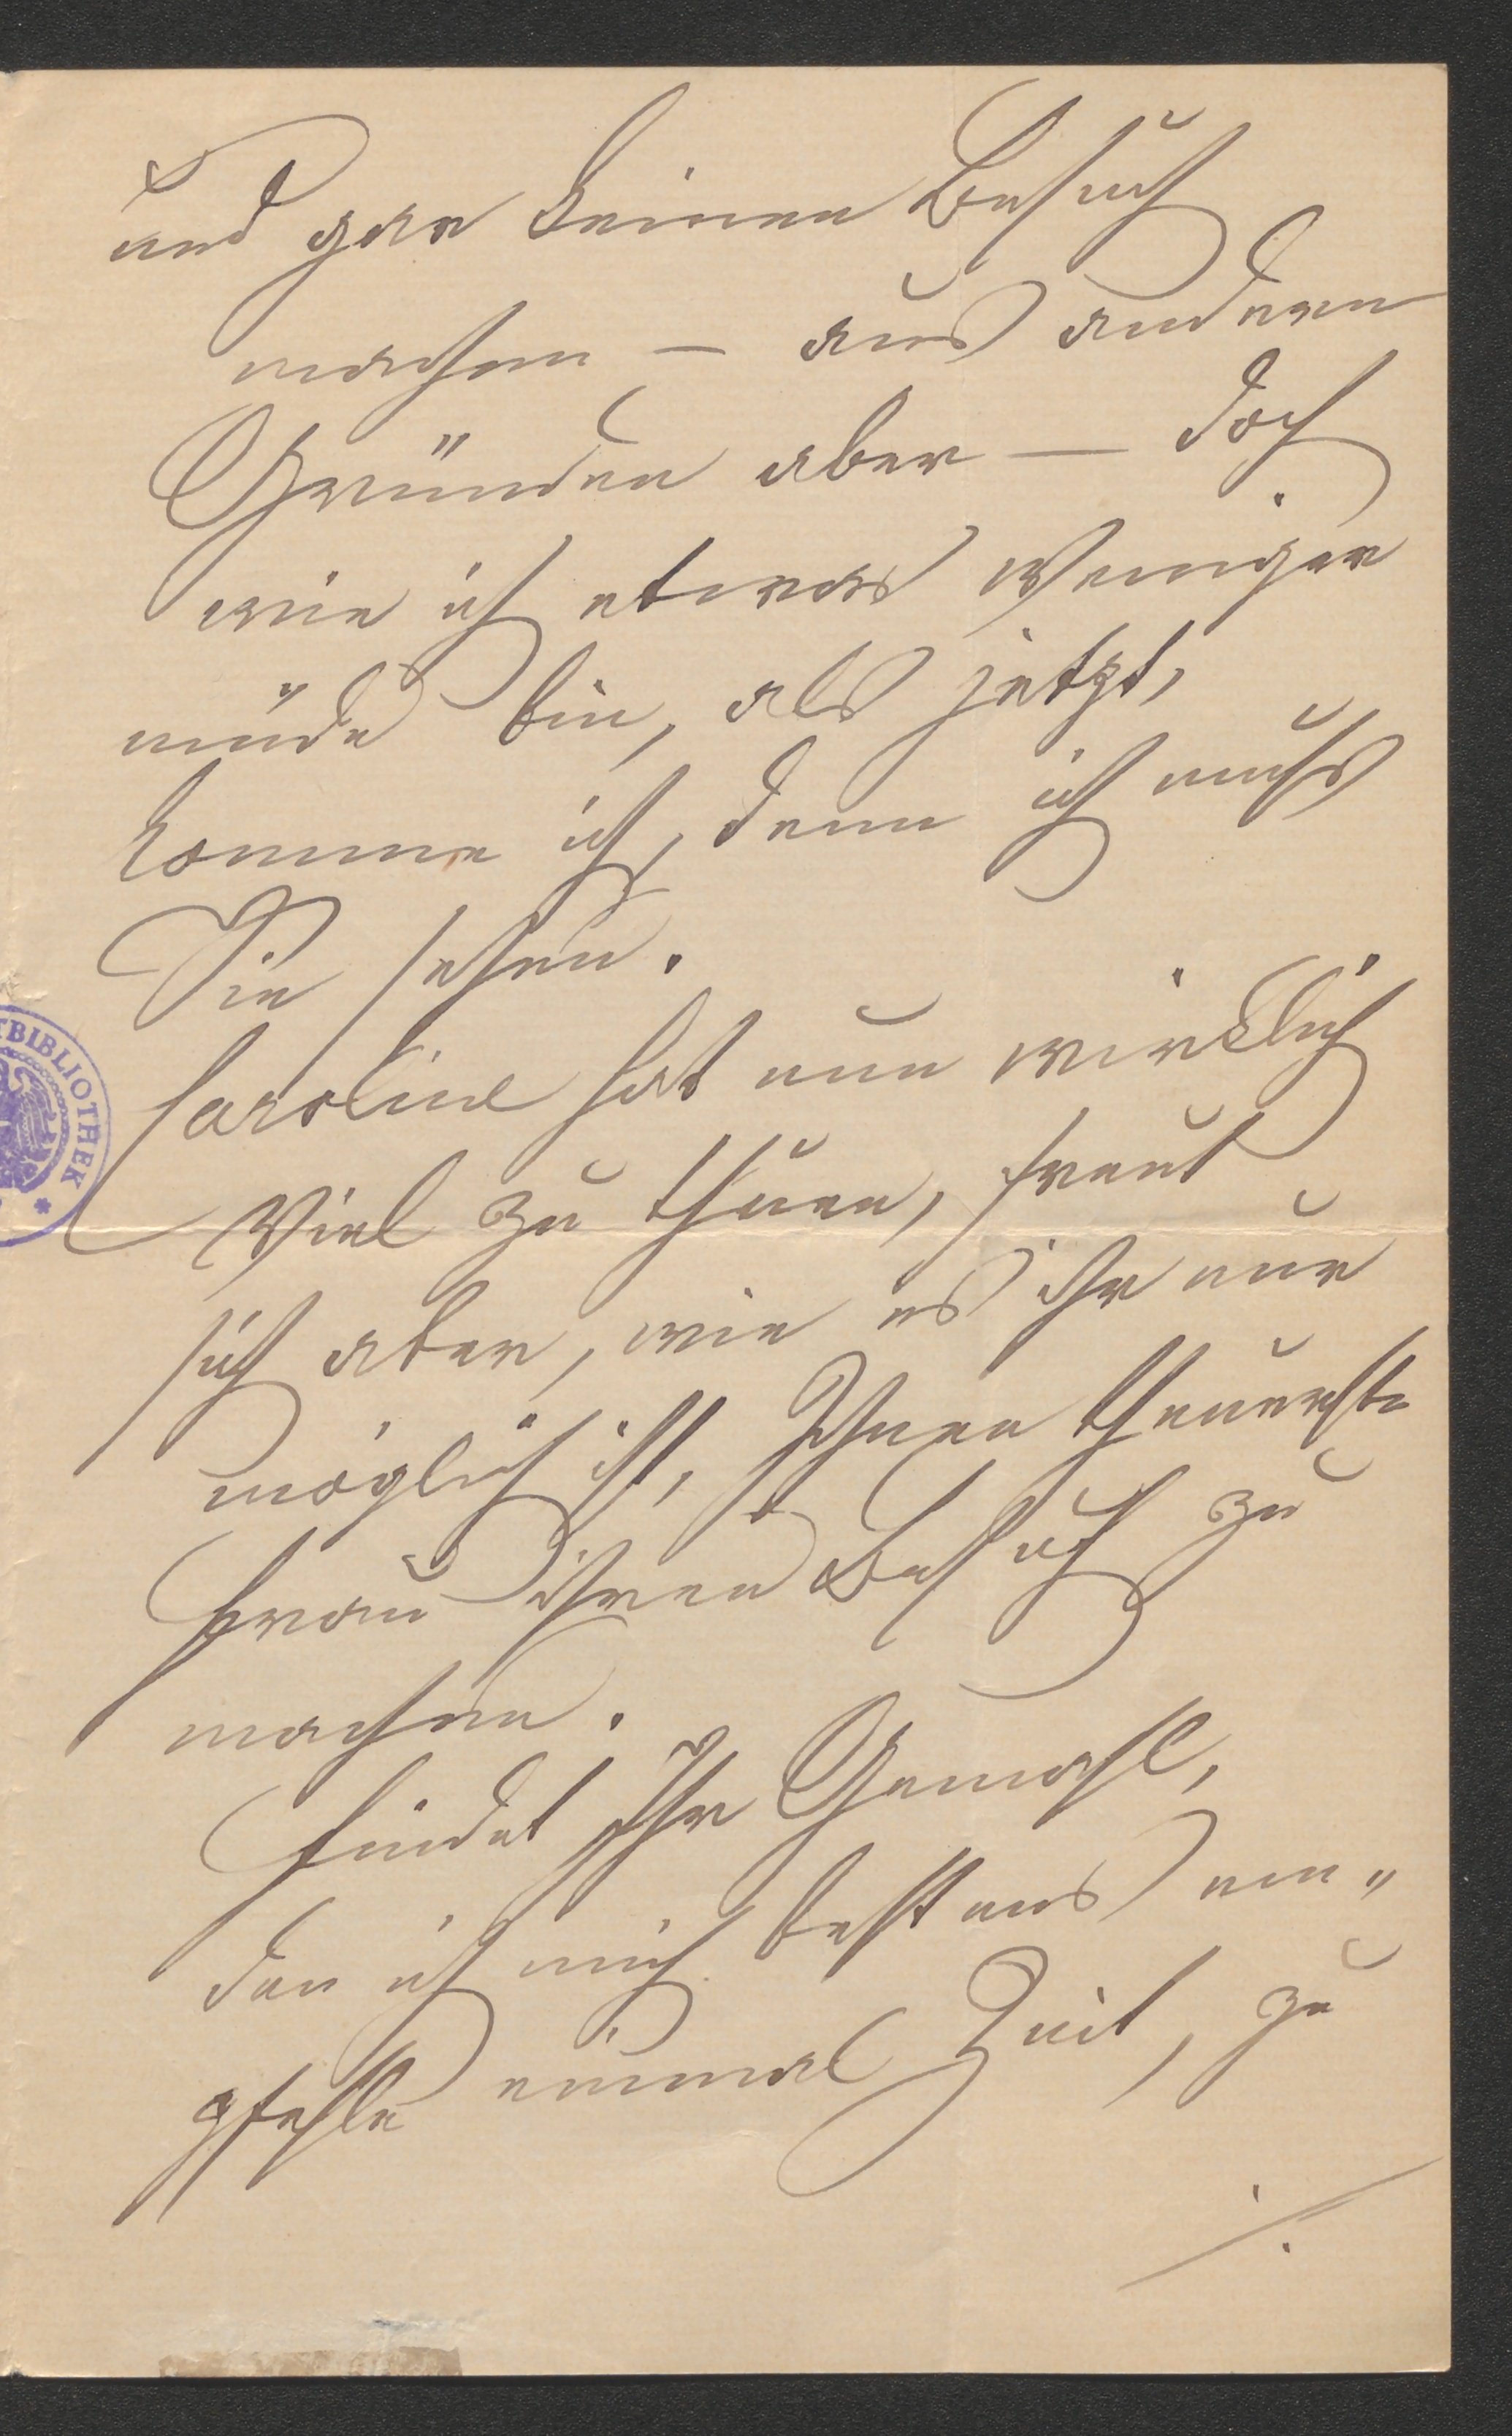 und gar keinen Besuch
machen – aus andern
Gründen aber – doch
wie ich etwas weniger
müde bin, als jetzt,
komme ich, denn ich muss
Sie sehen.
Caroline hat nun wirklich
viel zu thuen, freut
sich aber, wie es ihr nur
möglich ist, Ihnen theuerste
Frau ihren Besuch zu
machen.
Findet Ihr Gemahl,
den ich mich bestens em„
pfehle einmal Zeit, zu
./.
TBIBLIOTHEK *